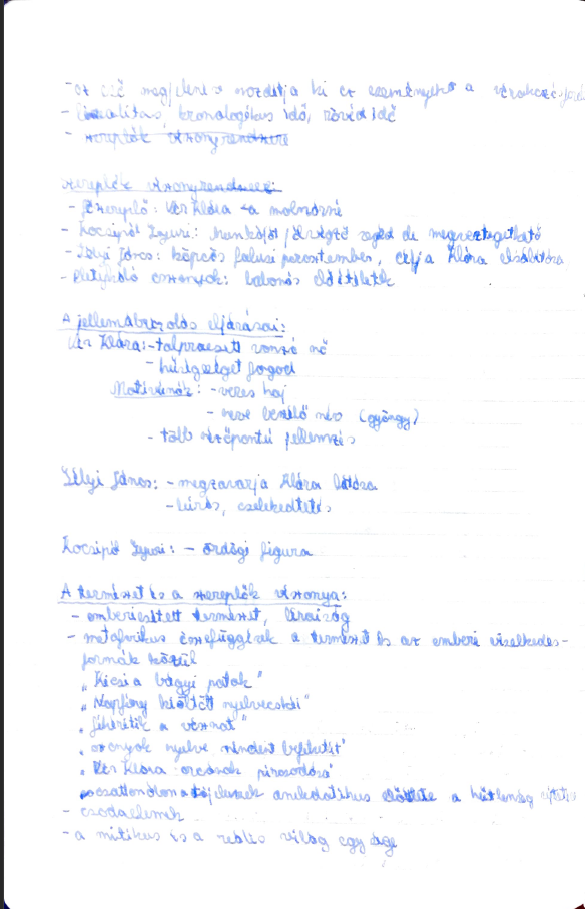 - az eső megjelenése mozdítja ki az eseményeket a
- linealitás, kronologikus idő, rövid idő
- szereplők viszonyrendszere
Szereplők viszonyrendszere:
- főszereplő: Vér Klára - a molnárné
- Kocsipál Gyuri: munkájat végző segéd de megvesztegethető
- Gélyi János: köpcös falusi parasztember, célja Klára elcsábítása
- Pletykáló asszonyok: babonás előítéletek
A jellemábrázolás eljárásai:
Vér Klára: - talpraesett vonzó nő
- hűségséget fogad
Motívumok: - veres haj
- neve beszélő név (gyöngy)
- több nézőpontú jellemzés
Gélyi János: - megzavarja Klára látása
- lírás, cselekedtetés
Kocsipál Gyuri: - ördögi figura
A természet és a szereplők viszonya:
- emberiesített természet, líraiság
- metafizikus összefüggések a természet és az emberi viselkedés-
formák közül
„Kicsi a bágyi patak"
„Napfény kiöltött nyelvecskéi"
„fehérítik a vásznat"
„asszonyok nyelve mindent befeketít"
„Vér Klára orcának pirosodása"
anekdotikus a hűtlenség
- csodaelemek
- a mitikus és a reális világ egysége